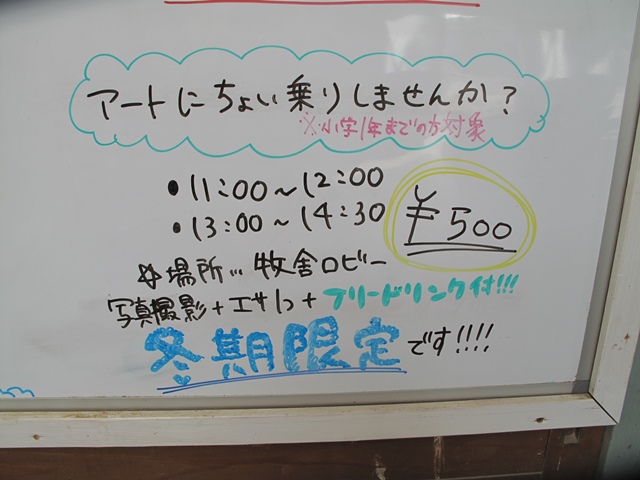 アートにちょい乗りしませんか?
※小学1年までの方対象
• 11:00~12:00
• 13:00~14:30
¥500
☆場所… 牧舎ロビー
写真撮影+エサやり+フリードリンク付!!!
冬期限定です!!!!